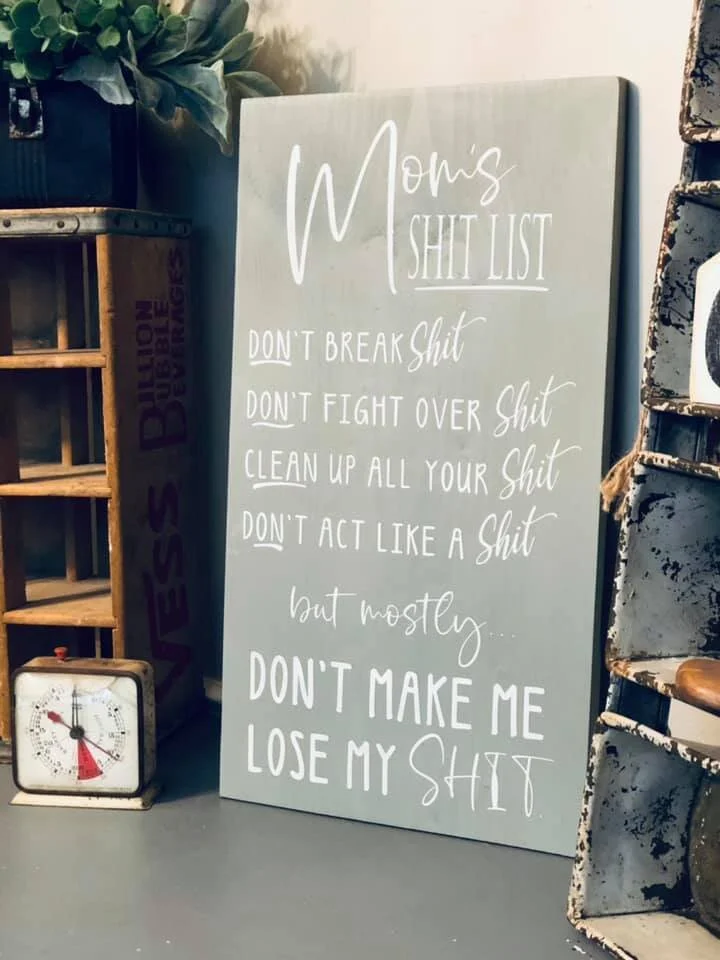 Mom's
SHIT LIST
DON'T BREAK Shit
DON'T FIGHT OVER Shit
CLEAN UP ALL YOUR Shit
DON'T ACT LIKE A Shit
but mostly...
DON'T MAKE ME
LOSE MY SHIT.
BILLION
BUBBLE
BEVERAGES
VESS